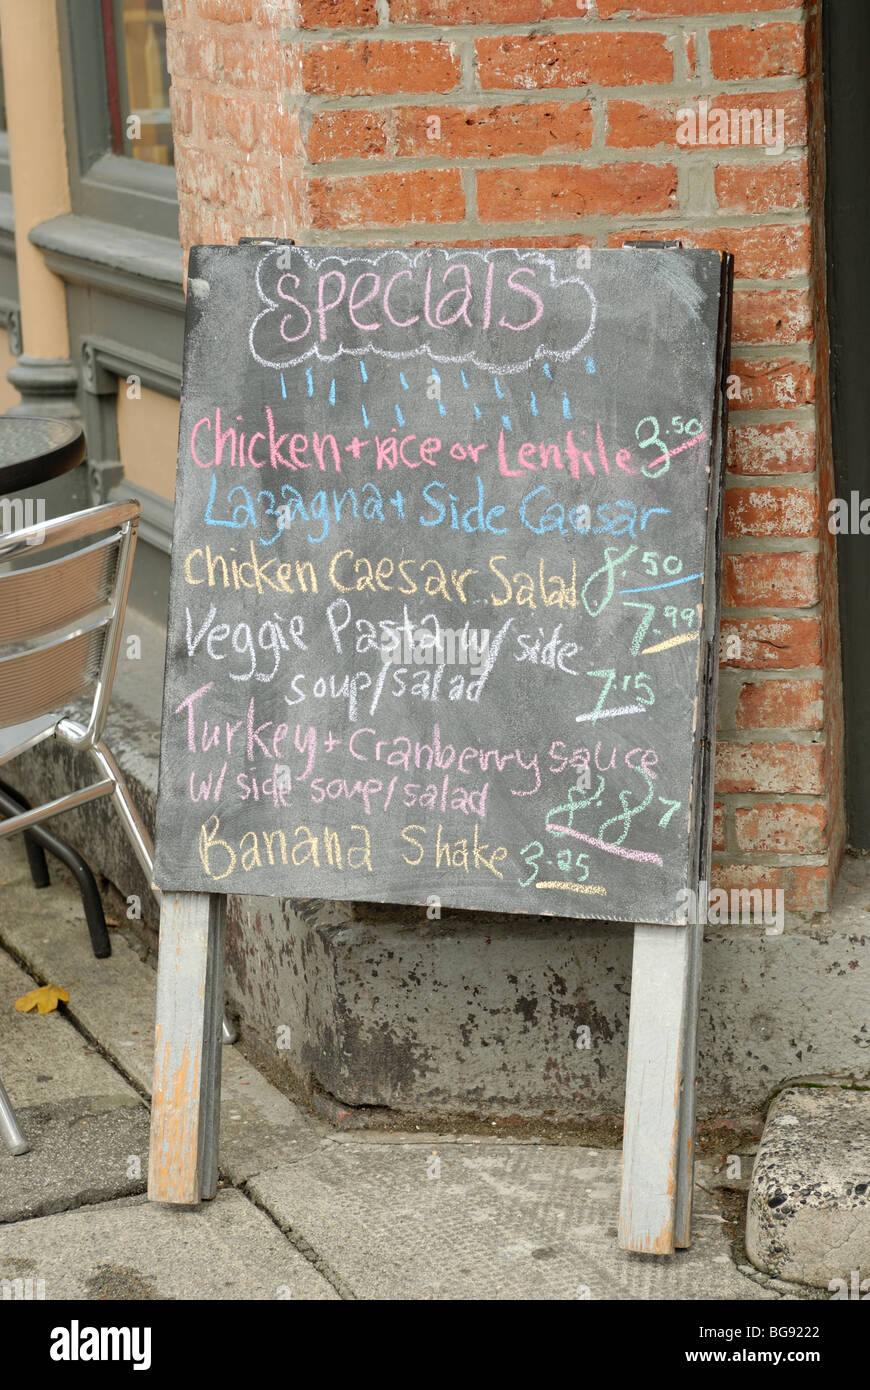 Specials
Chicken + Rice or Lentile 3.50
Lazagna + Side Caesar
8.50
Chicken Caesar Salad
7.99
Veggie Pasta w/ side
soup/salad 7.15
Turkey + Cranberry Sauce
w/ side soup/salad 8.87
Banana Shake 3.25
alamy
alamy
Image ID: BG9222
www.alamy.com